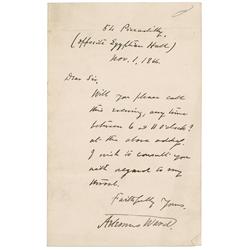 84 Piccadilly.
(opposite Egyptian Hall)
Nov. 1, 1866.
Dear Sir,
Will you please call
this evening, any time
between 6 & 11 o'clock?
at the above address.
I wish to consult you
with regard to my
throat.
Faithfully Yours,
Artemus Ward.